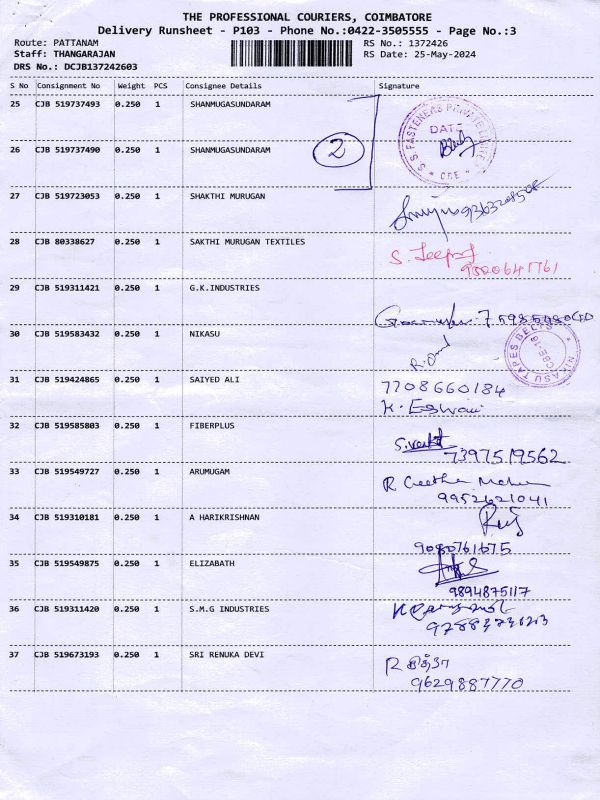 THE PROFESSIONAL COURIERS, COIMBATORE
Delivery Runsheet - P103 - Phone No.:0422-3505555 - Page No.:3
Route: PATTANAM
RS No.: 1372426
Staff: THANGARAJAN
RS Date: 25-May-2024
DRS No.: DCJB137242603
S No Consignment No Weight PCS Consignee Details Signature
25 CJB 519737493 0.250 1 SHANMUGASUNDARAM
S S FASTENERS PRIVATE LIMITED
DATE
CBE
2
26 CJB 519737490 0.250 1 SHANMUGASUNDARAM
27 CJB 519723053 0.250 1 SHAKTHI MURUGAN
28 CJB 80338627 0.250 1 SAKTHI MURUGAN TEXTILES
29 CJB 519311421 0.250 1 G.K.INDUSTRIES
30 CJB 519583432 0.250 1 NIKASU
NIKASU TAPES BELTS
CBE-16
31 CJB 519424865 0.250 1 SAIYED ALI
7708660184
32 CJB 519585803 0.250 1 FIBERPLUS
7397519562
33 CJB 519549727 0.250 1 ARUMUGAM
9952621041
34 CJB 519310181 0.250 1 A HARIKRISHNAN
35 CJB 519549875 0.250 1 ELIZABATH
9894875117
36 CJB 519311420 0.250 1 S.M.G INDUSTRIES
37 CJB 519673193 0.250 1 SRI RENUKA DEVI
9629887770